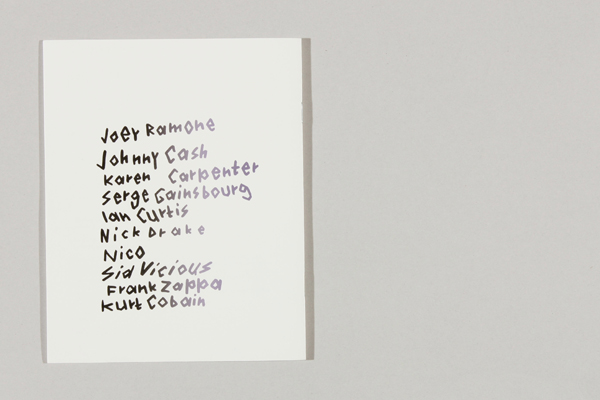 Joey Ramone
Johnny Cash
Karen Carpenter
Serge Gainsbourg
Ian Curtis
Nick Drake
Nico
Sid Vicious
Frank Zappa
Kurt Cobain